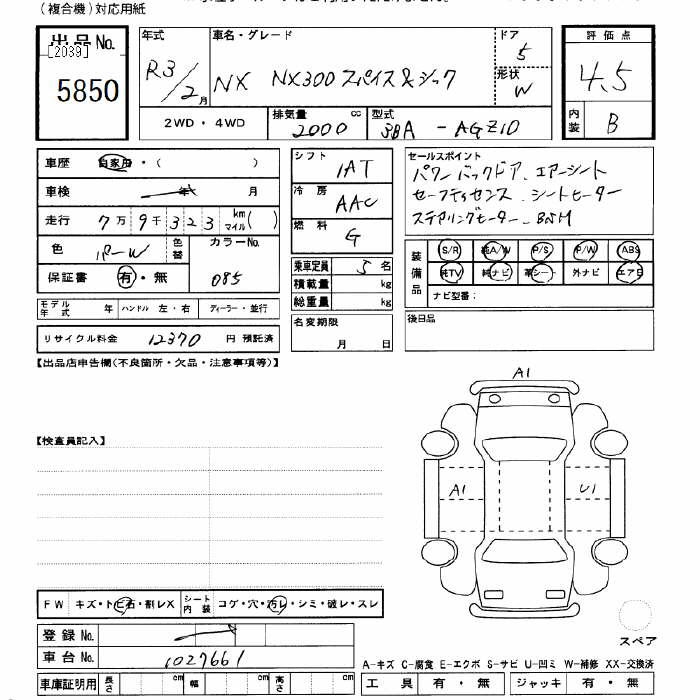 (複合機)対応用紙
出品No.
[2039]
5850
年式
R3/2月
車名・グレード
NX NX300 スパイス&シック
ドア
5
形状
W
評価点
4.5
内装
B
2WD・4WD
排気量
2000 cc
型式
3BA - AGZ10
車歴 自家用・( )
車検 年 月
走行 7万9千323 km マイル( )
色 パールW
色替
カラーNo.
085
保証書 有・無
モデル年式 年 ハンドル 左・右 ディーラー・並行
リサイクル料金 12370 円 預託済
シフト
IAT
冷房
AAC
燃料
G
乗車定員 5名
積載量 kg
総重量 kg
名変期限
月 日
セールスポイント
パワーバックドア、エアーシート
セーフティセンス、シートヒーター
ステアリングヒーター、BSM
装備品
S/R 純A/W P/S P/W ABS
純TV 純ナビ 革シート 外ナビ エアB
ナビ型番:
後日品
【出品店申告欄(不良箇所・欠品・注意事項等)】
【検査員記入】
A1
A1
U1
FW キズ・トビ石・割レX
シート内装 コゲ・穴・汚レ・シミ・破レ・スレ
登録No.
車台No. 1027661
車庫証明用 長さ cm 幅 cm 高さ cm
スペア
A-キズ C-腐食 E-エクボ S-サビ U-凹ミ W-補修 XX-交換済
工具 有・無 ジャッキ 有・無